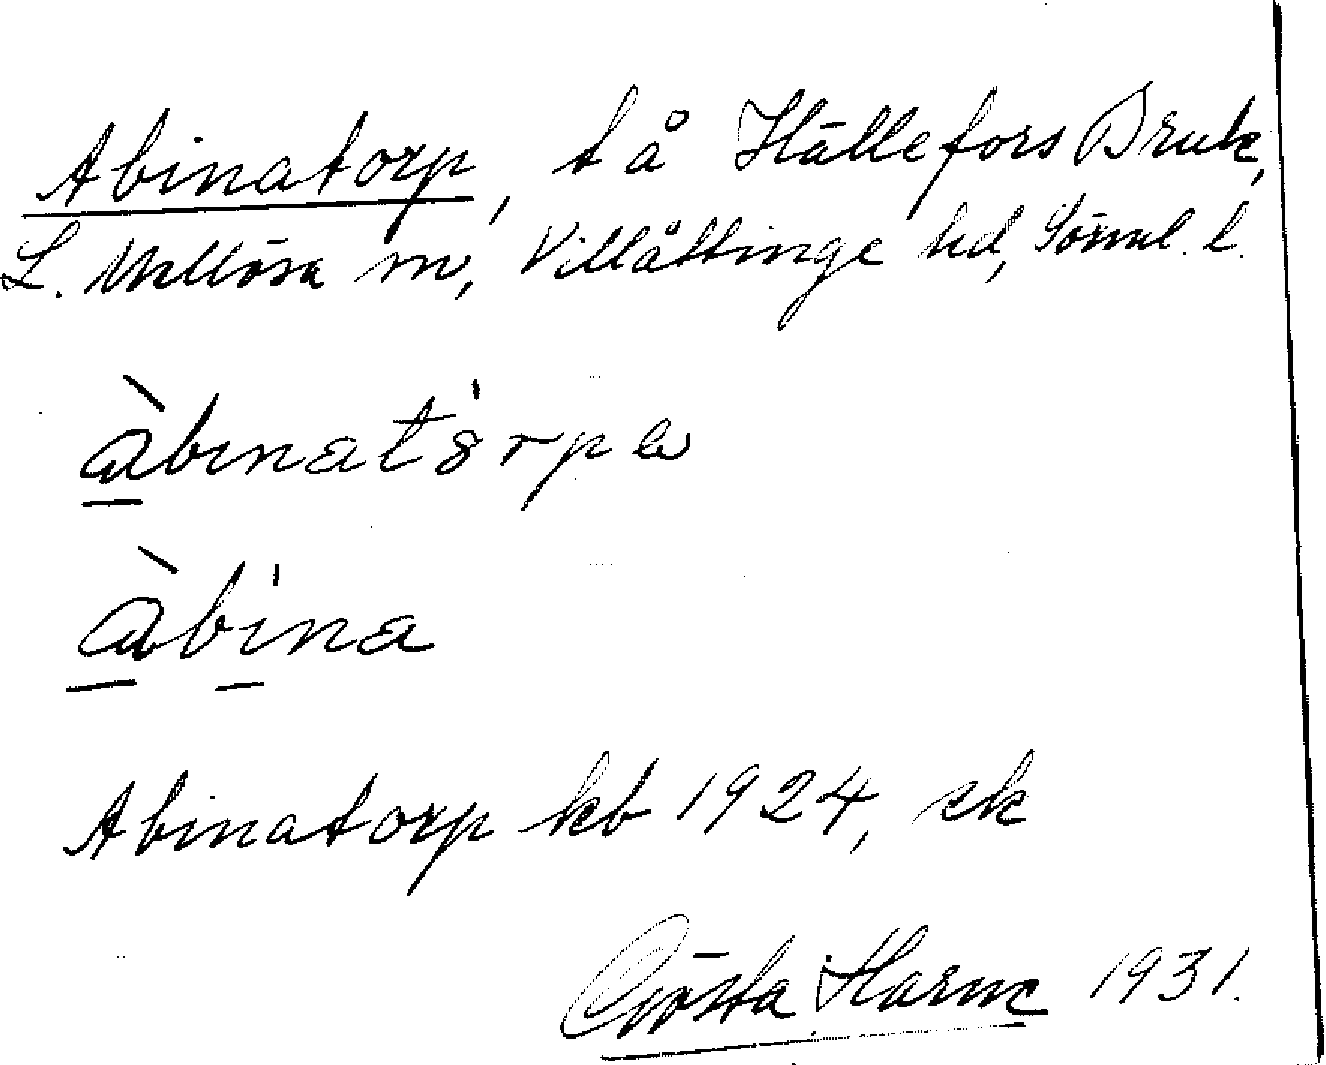 Abinatorp, t å Hällefors Bruk,
L. Mellösa sn, Villåttinge hd, Sörml. l.
àbinatȯrpa
àbina
Abinatorp kb 1924, ek
Gösta Harme 1931.